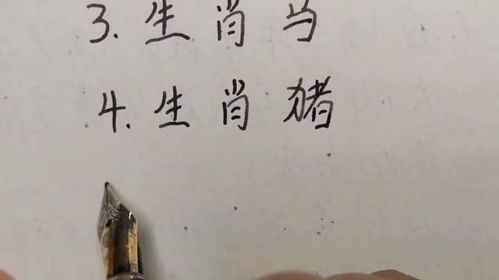 3. 生肖马
4. 生肖猪